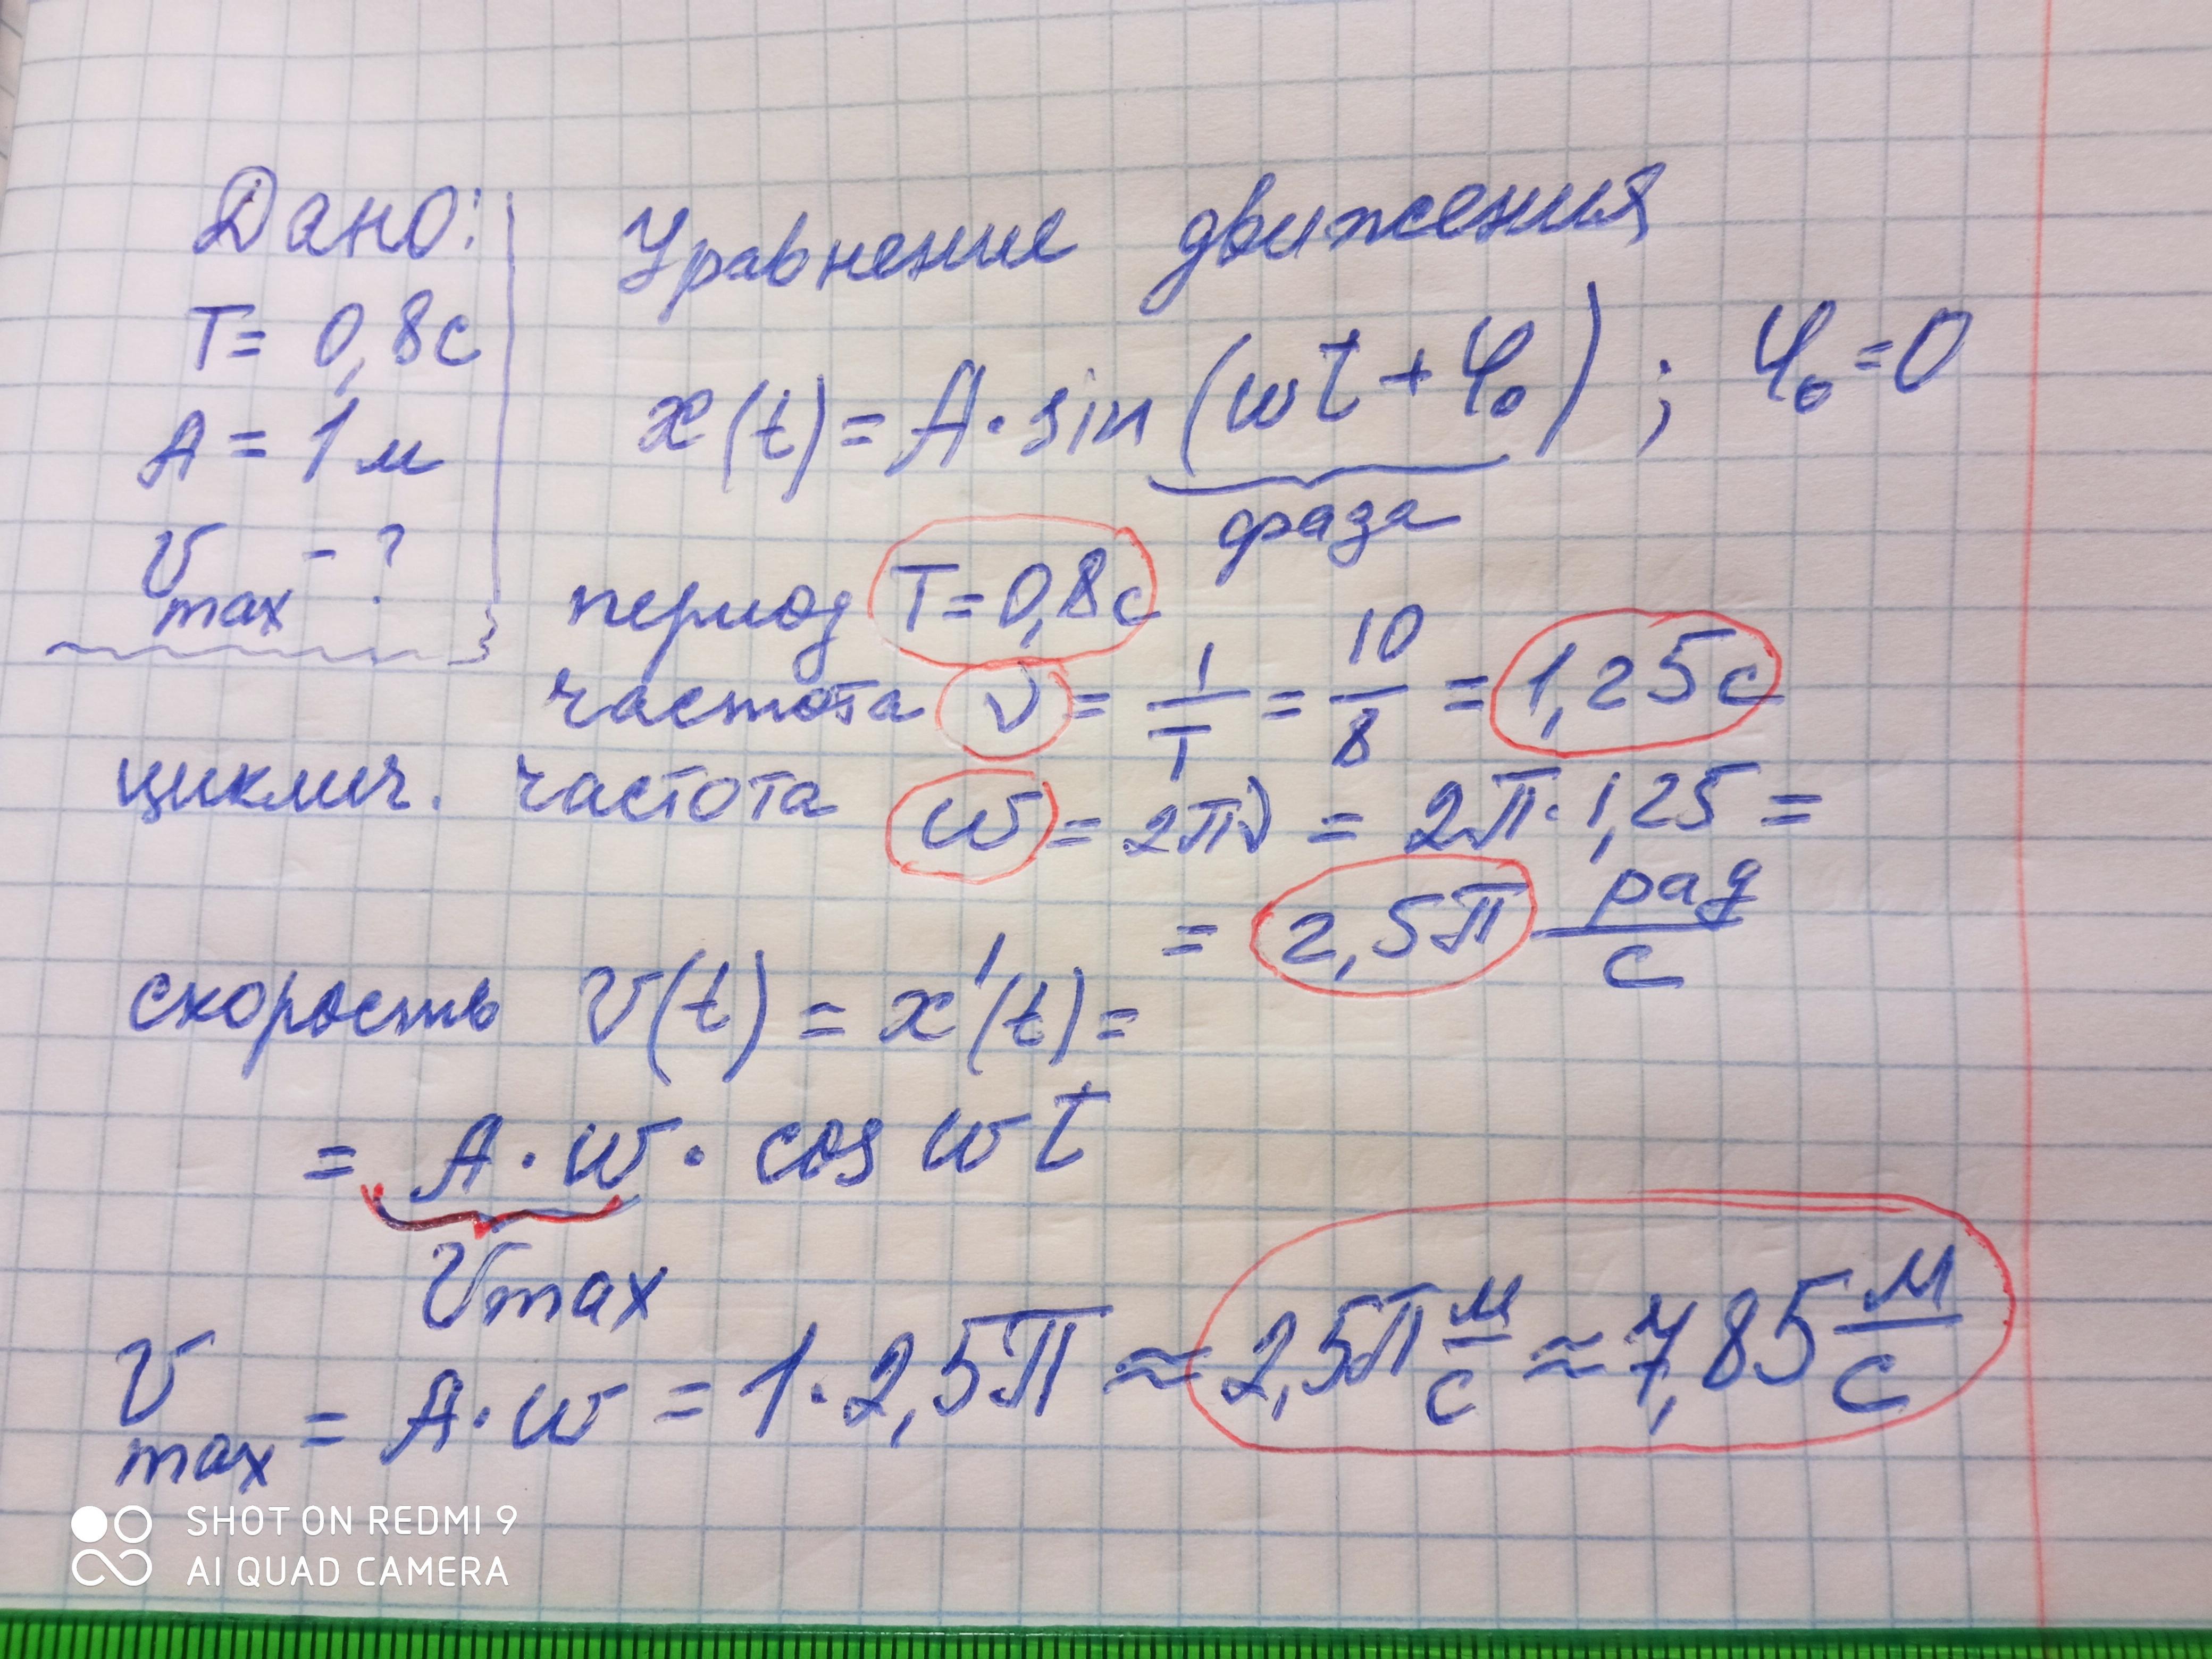 Дано:
T = 0,8с
A = 1 м
v max - ?
Уравнение движения
x(t) = A · sin (wt + φ₀) ; φ₀ = 0
фраза
период T = 0,8с
частота ν = 1/T = 10/8 = 1,25с
циклич. частота w = 2πν = 2π · 1,25 =
= 2,5π рад/с
скорость v(t) = x'(t) =
= A · w · cos wt
vmax
v max = A · w = 1 · 2,5π ≈ 2,5π м/с ≈ 7,85 м/с
SHOT ON REDMI 9
AI QUAD CAMERA